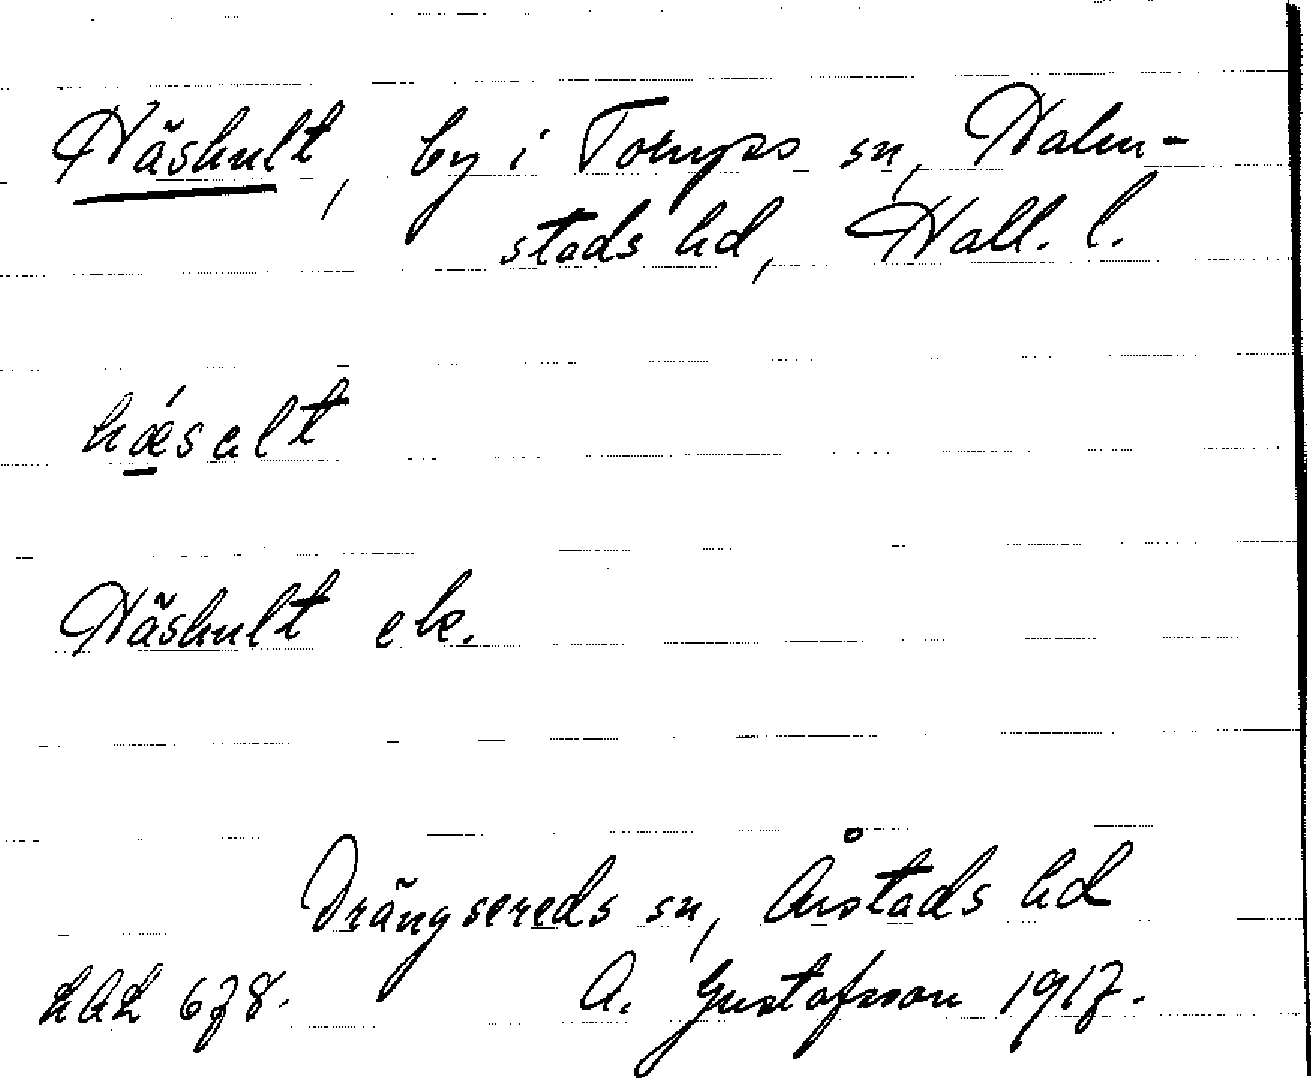 Häshult, by i Torups sn, Halm-
stads hd, Hall. l.
hǽsælt
Häshult ek.
Drängsereds sn, Årstads hd
LAL 678. A. Gustafsson 1917.